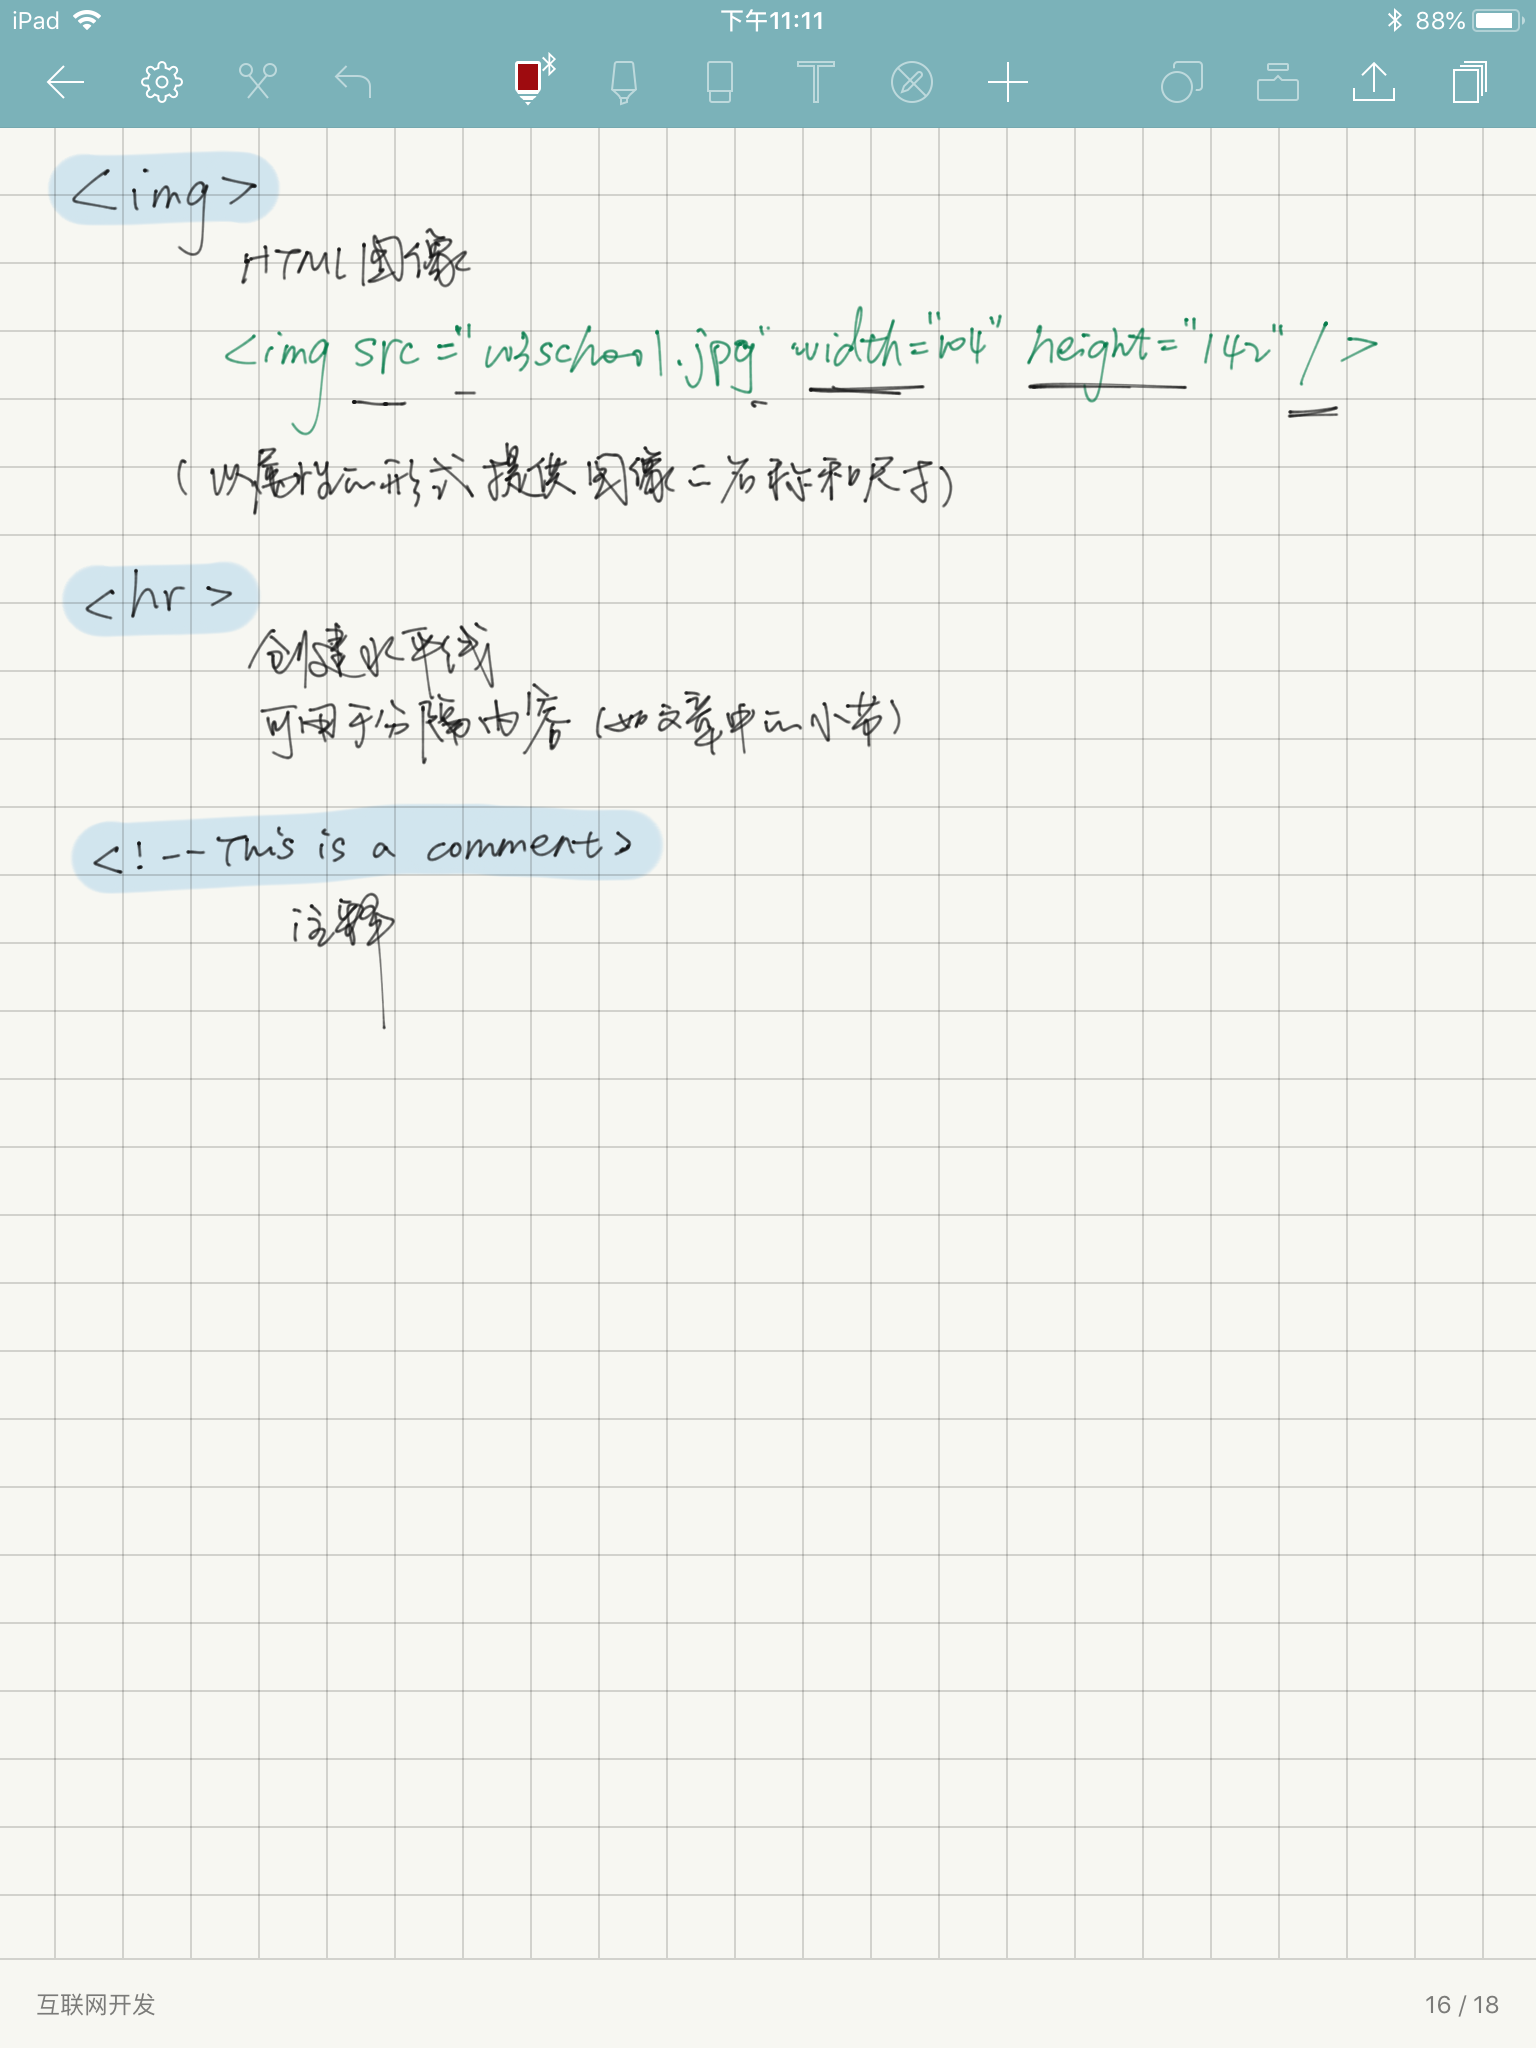 iPad 下午11:11 88%
<img>
HTML图像
<img src="w3school.jpg" width="104" height="142" />
(以属性的形式提供图像的名称和尺寸)
<hr>
创建水平线
可用于分隔内容(如文章中的小节)
<!--This is a comment>
注释
互联网开发 16 / 18